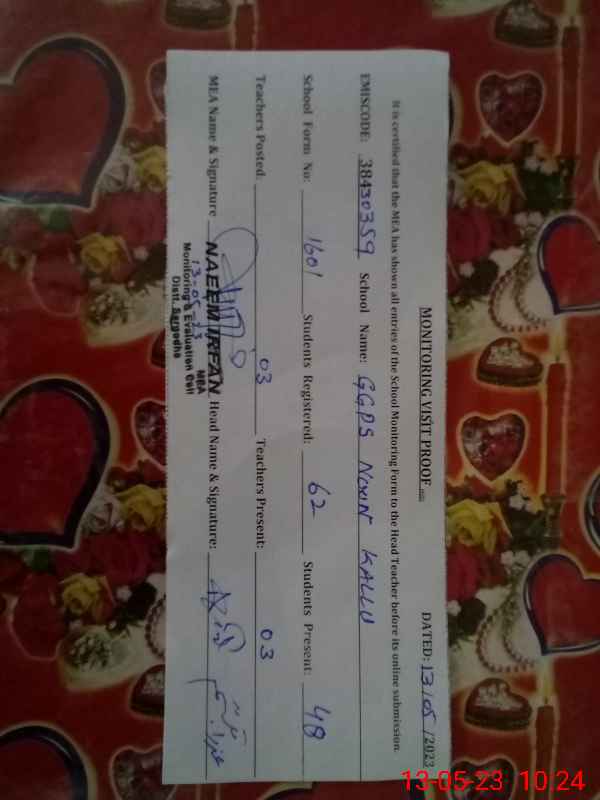 MONITORING VISIT PROOF
DATED: 13/05/2023
It is certified that the MEA has shown all entries of the School Monitoring Form to the Head Teacher before its online submission.
EMISCODE: 38430359 School Name: GGPS NOON KALLU
School Form No: 1601 Students Registered: 62 Students Present: 48
Teachers Posted. 03 Teachers Present: 03
MEA Name & Signature Head Name & Signature:
NAEEM IRFAN
MEA
13-05-23
Monitoring & Evaluation Cell
Distt. Sargodha
13-05-23 10:24